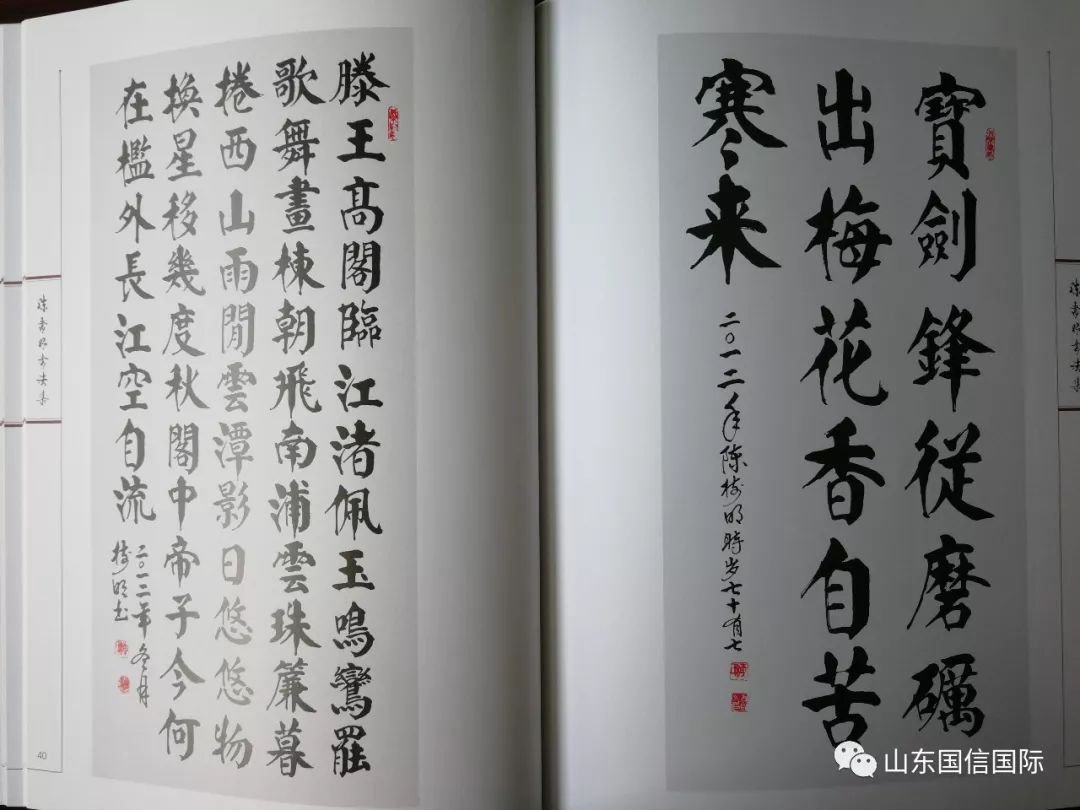 滕王髙閣臨江渚佩玉鳴鸞罷
歌舞畫棟朝飛南浦雲珠簾暮
捲西山雨閒雲潭影日悠悠物
換星移幾度秋閣中帝子今何
在檻外長江空自流
二〇一二年冬月
树明书
陈树明书法集
40
寶劍鋒從磨礪
出梅花香自苦
寒来
二〇一二年陈树明時岁七十有七
陈树明书法集
山东国信国际